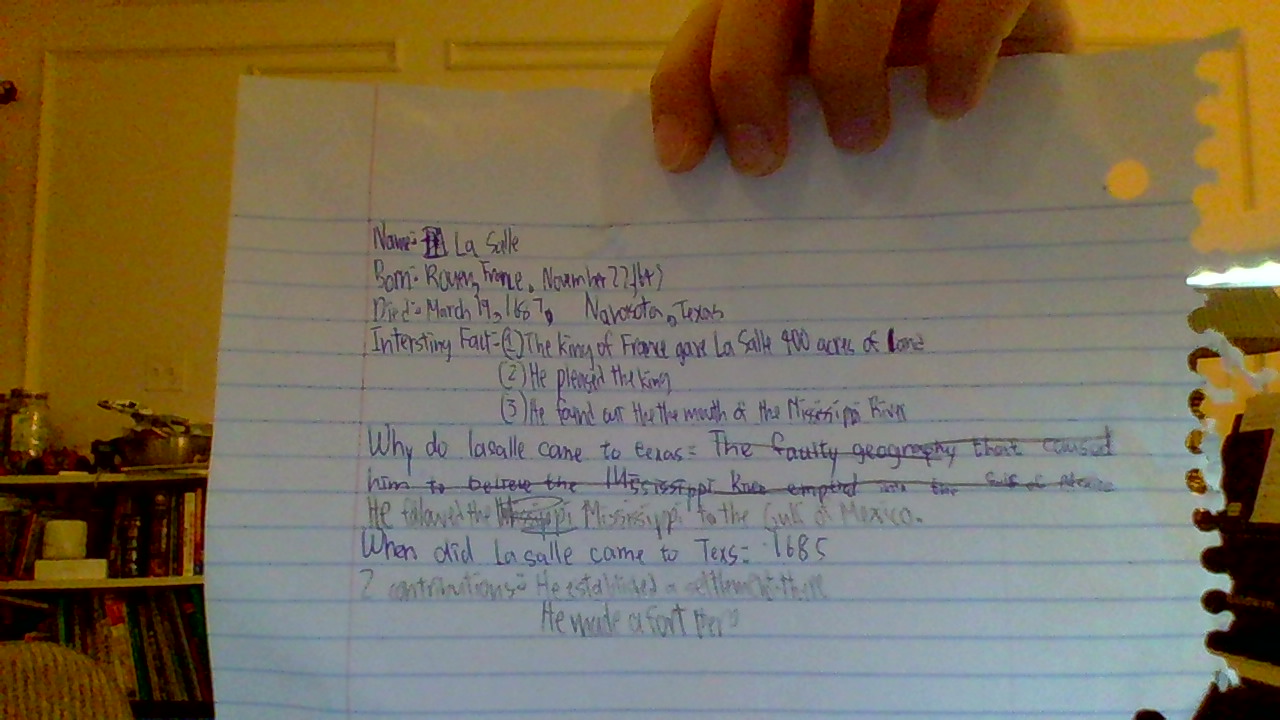 Name:- La Salle
Born:- Rouen, France, November 22,1643
Died:- March 19, 1687, Navosota, Texas
Intersting Fact-(1) The king of France gave La Salle 400 acres of land
(2) He pleased the king
(3) He found out the the mouth of the Mississippi River
Why do lasalle came to texas= The faulty geography that caused
him to beleve the Mississippi River emptied into the Gulf of Mexico
He followed the Mississippi Mississippi to the Gulf of Mexico.
When did La salle came to Texs= 1685
2 contributions:- He established a settlement there
He made a fort there